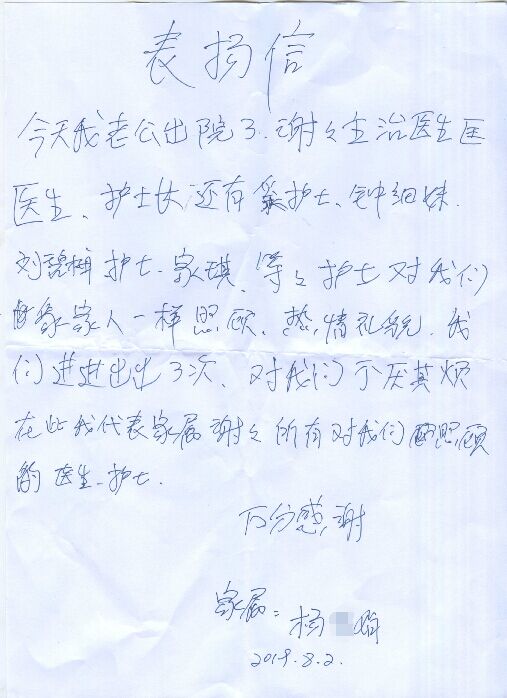 表扬信
今天我老公出院了.谢々主治医生匡
医生、护士长还有护士、钟细妹.
刘碧梅护士.家琪、等々护士对我们
像家人一样照顾、热情礼貌.我
们进进出出了3次、对我们不厌其烦
在此我代表家属谢々所有对我们照顾
的医生.护士.
万分感谢
家属：杨娟
2019.8.2.